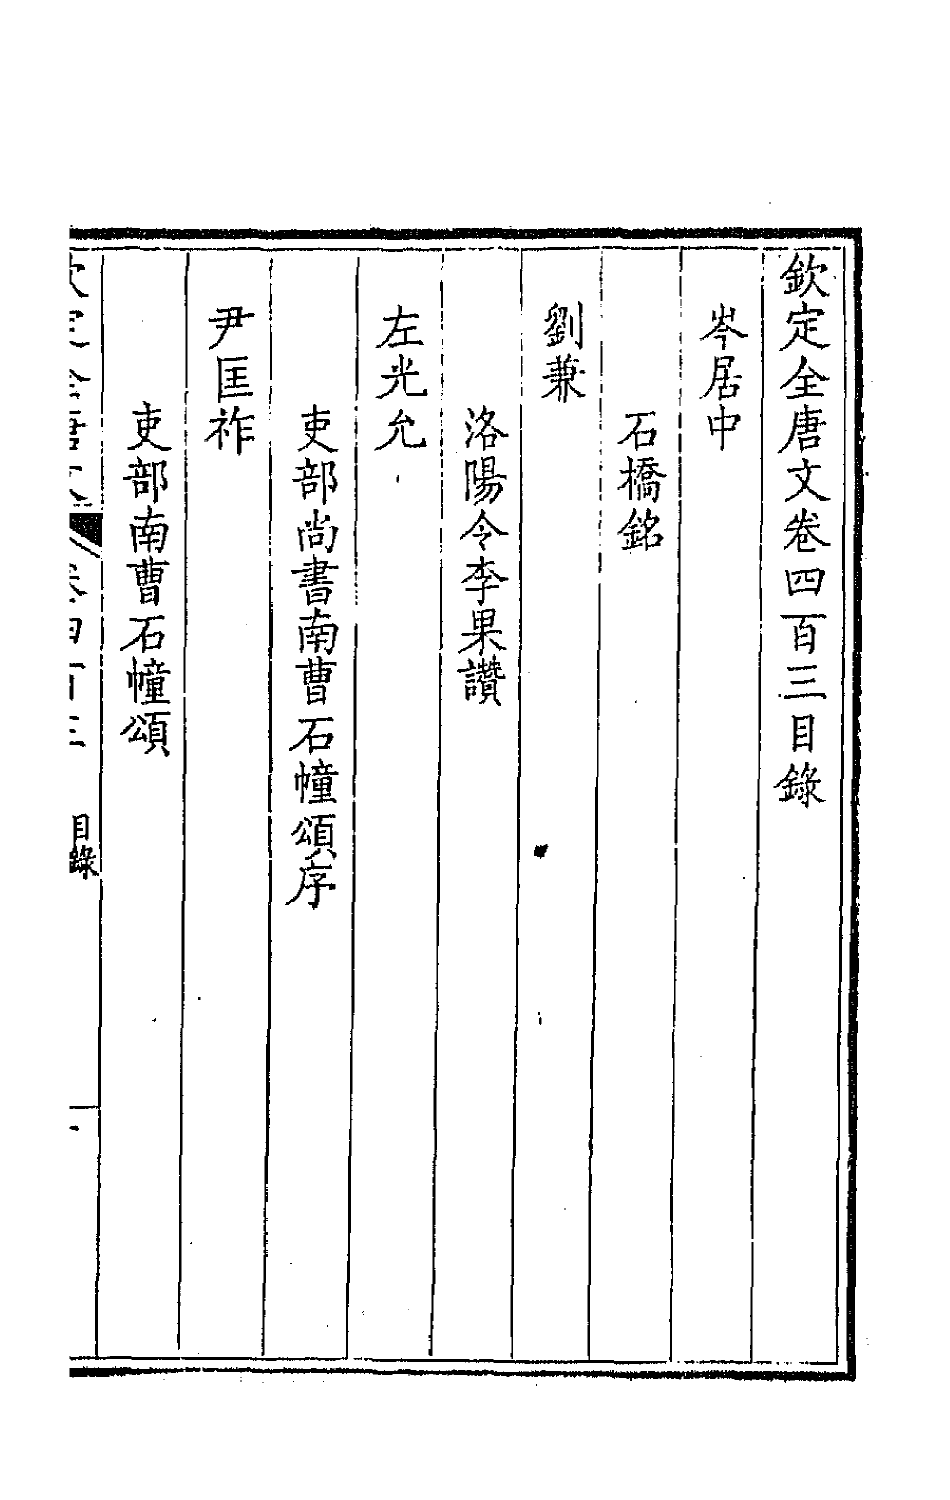 欽定全唐文卷四百三目錄
岑居中
石橋銘
劉兼
洛陽令李果讚
左光允
吏部尚書南曹石幢頌序
尹匡祚
吏部南曹石幢頌
欽定全唐文 卷四百三 目錄 一